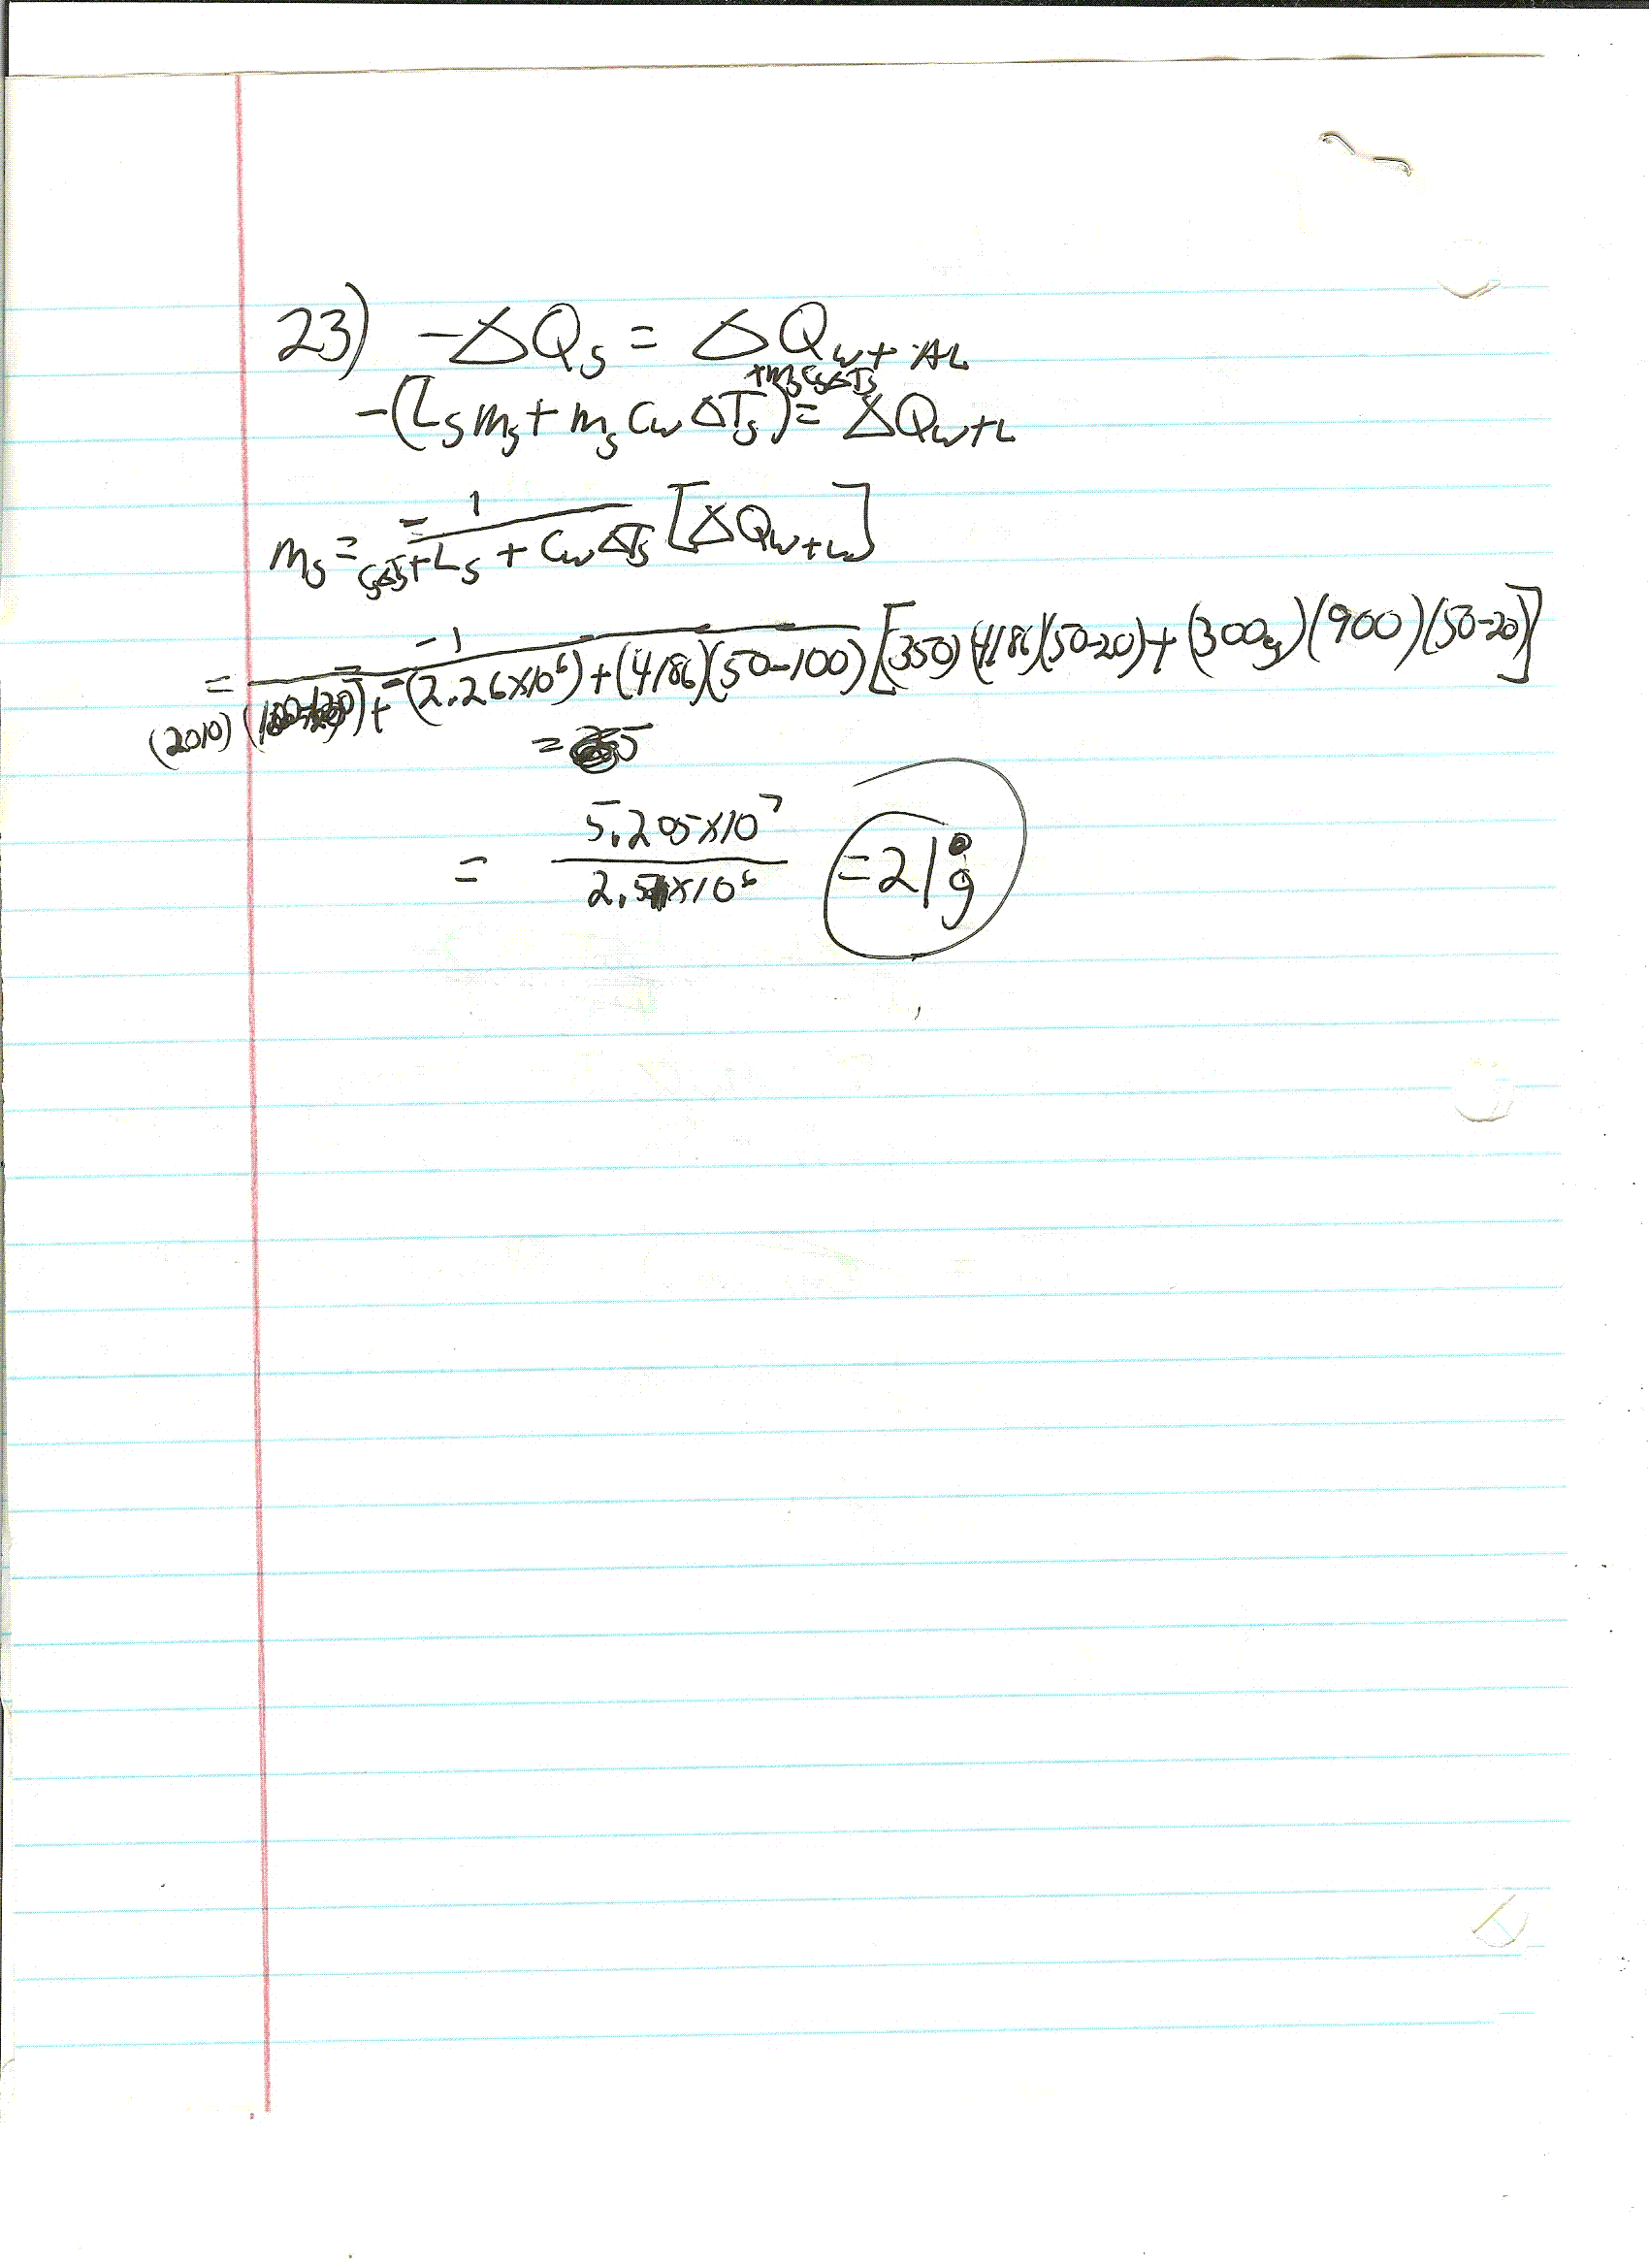 23) -ΔQs = ΔQw+AL
-(Lsms + mscwΔTs +mscsΔTs) = ΔQw+L
ms = -1/(csΔTs + Ls + cwΔTs) [ΔQw+L]
= -1/((2010)( ) + -(2.26x10^6) + (4186)(50-100)) [(350)(4186)(50-20) + (300g)(900)(50-20)]
= 5
= 5.205x10^7/2.51x10^6 = 21g